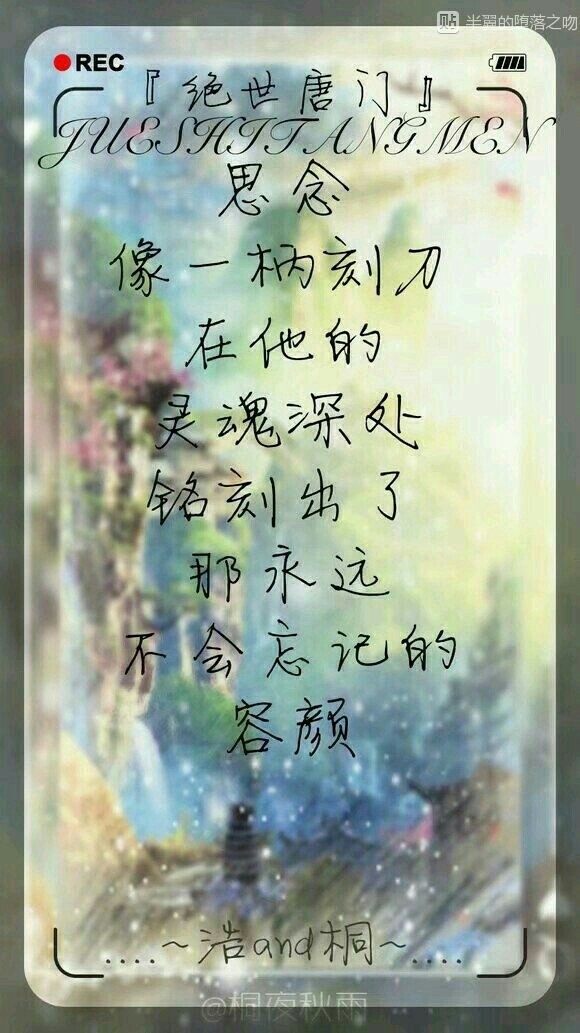 贴 半翼的堕落之吻
REC
『绝世唐门』
JUESHITANGMEN
思念
像一柄刻刀
在他的
灵魂深处
铭刻出了
那永远
不会忘记的
容颜
....~浩and桐~....
@桐夜秋雨